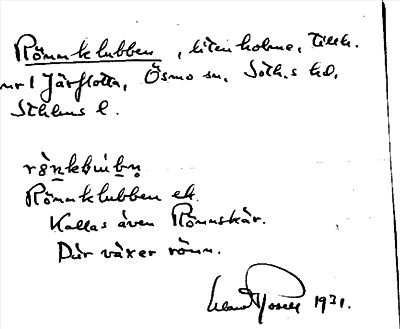 Rönnklubben, liten holme, tillh.
nr 1 Järflotta, Ösmo sn, Soth.s hd,
Sthlms l.
Rönnklubben ek.
Kallas även Rönnskär.
Där växer rönn.
1931.